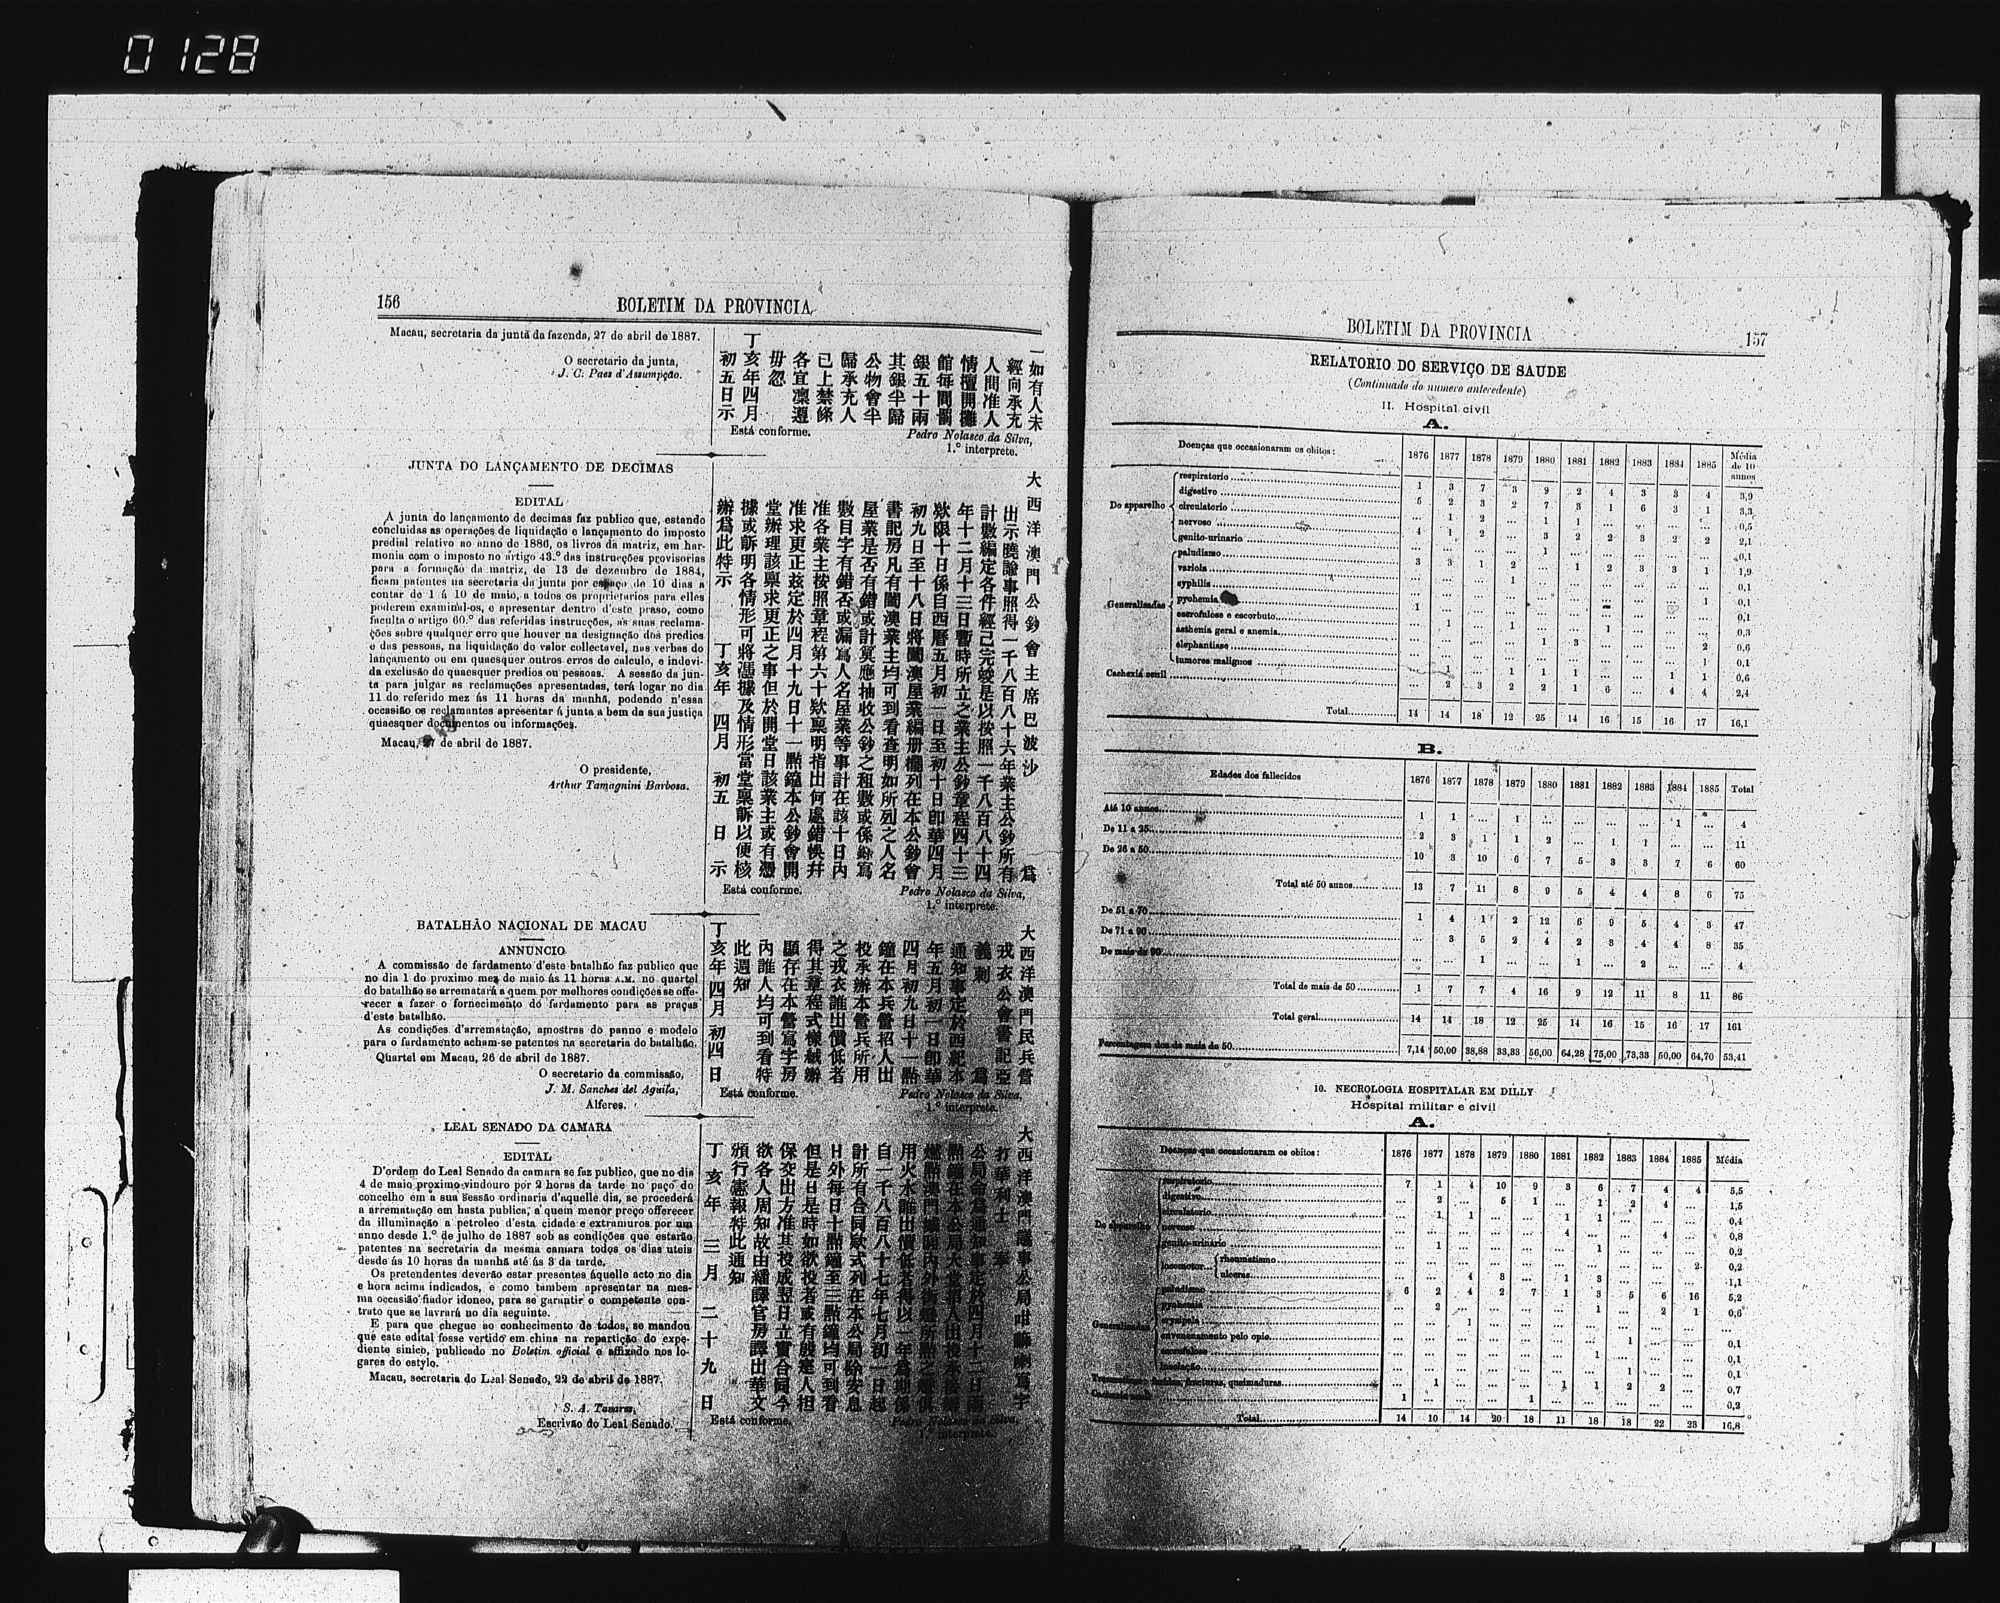 0128
156
BOLETIM DA PROVINCIA
Macau, secretaria da junta da fazenda, 27 de abril de 1887.
O secretario da junta,
J. C. Paes d'Assumpção.
一如有人未
經向承充
人間准人
情擅開攤
館每間罰
銀五十兩
其銀半歸
公物會半
歸承充人
已上禁條
各宜凜遵
毋忽
丁亥年四月
初五日示
Está conforme.
Pedro Nolasco da Silva,
1.º interprete.
JUNTA DO LANÇAMENTO DE DECIMAS
EDITAL
A junta do lançamento de decimas faz publico que, estando
concluidas as operações de liquidação e lançamento do imposto
predial relativo ao anno de 1886, os livros da matriz, em har-
monia com o imposto no artigo 43.º das instrucções provisorias
para a formação da matriz, de 13 de dezembro de 1884,
ficam patentes na secretaria da junta por espaço de 10 dias a
contar de 1 á 10 de maio, a todos os proprietarios para elles
poderem examinal-os, e apresentar dentro d'este praso, como
faculta o artigo 60.º das referidas instrucções, as suas reclama-
ções sobre qualquer erro que houver na designação dos predios
e das pessoas, na liquidação do valor collectavel, nas verbas do
lançamento ou em quaesquer outros erros de calculo, e indevi-
da exclusão de quaesquer predios ou pessoas. A sessão da jun-
ta para julgar as reclamações apresentadas, terá logar no dia
11 do referido mez ás 11 horas da manhã, podendo n'essa
occasião os reclamantes apresentar á junta a bem da sua justiça
quaesquer documentos ou informações.
Macau, 27 de abril de 1887.
O presidente,
Arthur Tamagnini Barbosa.
大西洋澳門公鈔會主席巴波沙 爲
出示曉諭事照得一千八百八十六年業主公鈔所有
計數編定各件經己完竣是以按照一千八百八十四
年十二月十三日暫時所立之業主公鈔章程四十三
欵限十日係自西曆五月初一日至初十日卽華四月
初九日至十八日將闔澳屋業編册擺列在本公鈔會
書記房凡有闔澳業主均可到看查明如所列之人名
屋業是否有錯或計算應抽收公鈔之租數或係錄寫
數目字有錯否或漏寫人名屋業等事計在該十日內
准各業主按照章程第六十欵稟明指出何處錯悞幷
准求更正兹定於四月十九日十一點鐘本公鈔會開
堂辦理該稟求更正之事但於開堂日該業主或有憑
據或訴明各情形可將憑據及情形當堂稟訴以便核
辦爲此特示 丁亥年 四月 初五 日 示
Está conforme.
Pedro Nolasco da Silva,
1.º interprete.
BATALHÃO NACIONAL DE MACAU
ANNUNCIO
A commissão de fardamento d'este batalhão faz publico que
no dia 1 do proximo mez de maio ás 11 horas A.M. no quartel
do batalhão se arrematará a quem por melhores condições se offe-
recer a fazer o fornecimento do fardamento para as praças
d'este batalhão.
As condições d'arrematação, amostras do panno e modelo
para o fardamento acham-se patentes na secretaria do batalhão.
Quartel em Macau, 26 de abril de 1887.
O secretario da commissão,
J. M. Sanches del Aguila,
Alferes.
大西洋澳門民兵營
戎衣公會書記亞
義剌 爲
通知事定於西紀本
年五月初一日卽華
四月初九日十一點
鐘在本兵營招人出
投承辦本營兵所用
之戎衣誰出價低者
得其章程式樣絨辦
顯存在本營寫字房
內誰人均可到看特
此週知
丁亥年四月初四日
Está conforme.
Pedro Nolasco da Silva,
1.º interprete.
LEAL SENADO DA CAMARA
EDITAL
D'ordem do Leal Senado da camara se faz publico, que no dia
4 de maio proximo vindouro por 2 horas da tarde no paço do
concelho em a sua sessão ordinaria d'aquelle dia, se procederá
a arrematação em hasta publica, a quem menor preço offerecer
da illuminação a petroleo d'esta cidade e extramuros por um
anno desde 1.º de julho de 1887 sob as condições que estarão
patentes na secretaria da mesma camara todos os dias uteis
desde ás 10 horas da manhã até ás 3 da tarde.
Os pretendentes deverão estar presentes áquelle acto no dia
e hora acima indicados, e como tambem apresentar na mes-
ma occasião fiador idoneo, para se garantir o competente con-
trato que se lavrará no dia seguinte.
E para que chegue ao conhecimento de todos, se mandou
que este edital fosse vertido em china na repartição do expe-
diente sinico, publicado no Boletim official e affixado nos lo-
gares do estylo.
Macau, secretaria do Leal Senado, 22 de abril de 1887.
S. A. Tavares,
Escrivão do Leal Senado.
自一千八百八十七年七月初一日起
計所有合同欵式列在本公局除安息
日外每日十點鐘至三點鐘均可到看
但是日是時如欲投者或有殷寔人担
保交出方准其投成翌日立實合同今
欲各人周知故由繙譯官房譯出華文
頒行憲報特此通知
丁亥年 三月 二十九日
Está conforme.
Pedro Nolasco da Silva,
1.º interprete.
BOLETIM DA PROVINCIA
157
RELATORIO DO SERVIÇO DE SAUDE
(Continuado do numero antecedente)
II. Hospital civil
A.
Doenças que occasionaram os obitos: 1876 1877 1878 1879 1880 1881 1882 1883 1884 1885 Média de 10 annos
Do apparelho
respiratorio 1 3 7 3 9 2 4 3 3 4 3,9
digestivo 5 2 3 2 7 3 1 6 3 1 3,3
circulatorio ... 1 2 ... 1 1 ... ... ... ... 0,5
nervoso 4 1 2 ... 3 2 2 3 2 2 2,1
genito-urinario ... ... ... ... 1 ... ... ... ... ... 0,1
Generalisadas
paludismo 3 3 1 2 ... 1 2 3 3 1 1,9
variola ... ... ... 1 ... ... ... ... ... ... 0,1
syphilis ... ... ... ... ... ... ... ... ... 1 0,1
pyohemia 1 ... ... ... ... ... ... ... ... ... 0,1
escrofulose e escorbuto ... 1 ... 1 ... ... 1 ... ... ... 0,3
asthenia geral e anemia ... ... ... ... 1 3 ... ... ... 2 0,6
elephantiase ... ... ... ... ... ... ... ... ... 1 0,1
tumores malignos ... 1 ... 1 1 1 ... ... 1 1 0,6
Cachexiá senil ... 2 3 2 2 1 6 ... 4 4 2,4
Total 14 14 18 12 25 14 16 15 16 17 16,1
B.
Edades dos fallecidos 1876 1877 1878 1879 1880 1881 1882 1883 1884 1885 Total
Até 10 annos 1 1 ... 1 ... ... ... ... 1 ... 4
De 11 a 25 2 3 1 1 2 ... 1 1 ... ... 11
De 26 a 50 10 3 10 6 7 5 3 3 7 6 60
Total até 50 annos 13 7 11 8 9 5 4 4 8 6 75
De 51 a 70 1 4 1 2 12 6 9 5 4 3 47
De 71 a 90 ... 3 5 2 4 2 3 4 4 8 35
De mais de 90 ... ... 1 ... ... 1 ... 2 ... ... 4
Total de mais de 50 1 7 7 4 16 9 12 11 8 11 86
Total geral 14 14 18 12 25 14 16 15 16 17 161
Percentagem dos de mais de 50 7,14 50,00 38,88 33,33 56,00 64,28 75,00 73,33 50,00 64,70 53,41
10. NECROLOGIA HOSPITALAR EM DILLY
Hospital militar e civil
A.
Doenças que occasionaram os obitos: 1876 1877 1878 1879 1880 1881 1882 1883 1884 1885 Média
Do apparelho
respiratorio 7 1 4 10 9 3 6 7 4 4 5,5
digestivo ... 2 ... 5 1 ... 1 2 4 ... 1,5
circulatorio ... 1 1 ... ... 1 1 ... ... ... 0,4
nervoso ... ... ... ... ... 4 ... ... 4 ... 0,8
genito-urinario ... 1 ... ... ... ... 1 ... ... ... 0,2
locomotor
rheumatismo ... ... ... ... ... ... ... ... ... 2 0,2
ulceras ... ... 4 3 ... 1 3 ... ... ... 1,1
Generalisadas
paludismo 6 2 4 2 7 1 3 5 6 16 5,2
pyohemia ... 2 ... ... ... ... 1 ... 2 1 0,6
erysipela ... ... 1 ... ... ... ... ... ... ... ...
envenenamento pelo opio ... ... ... ... ... ... ... 1 ... ... 0,1
escrofulose ... ... ... ... ... ... 1 ... ... ... 0,1
insolação ... ... ... ... ... ... ... 1 ... ... 0,1
fracturas, queimaduras ... 1 ... ... ... 1 1 2 2 ... 0,7
1 ... ... ... 1 ... ... ... ... ... 0,2
Total 14 10 14 20 18 11 18 18 22 23 16,8